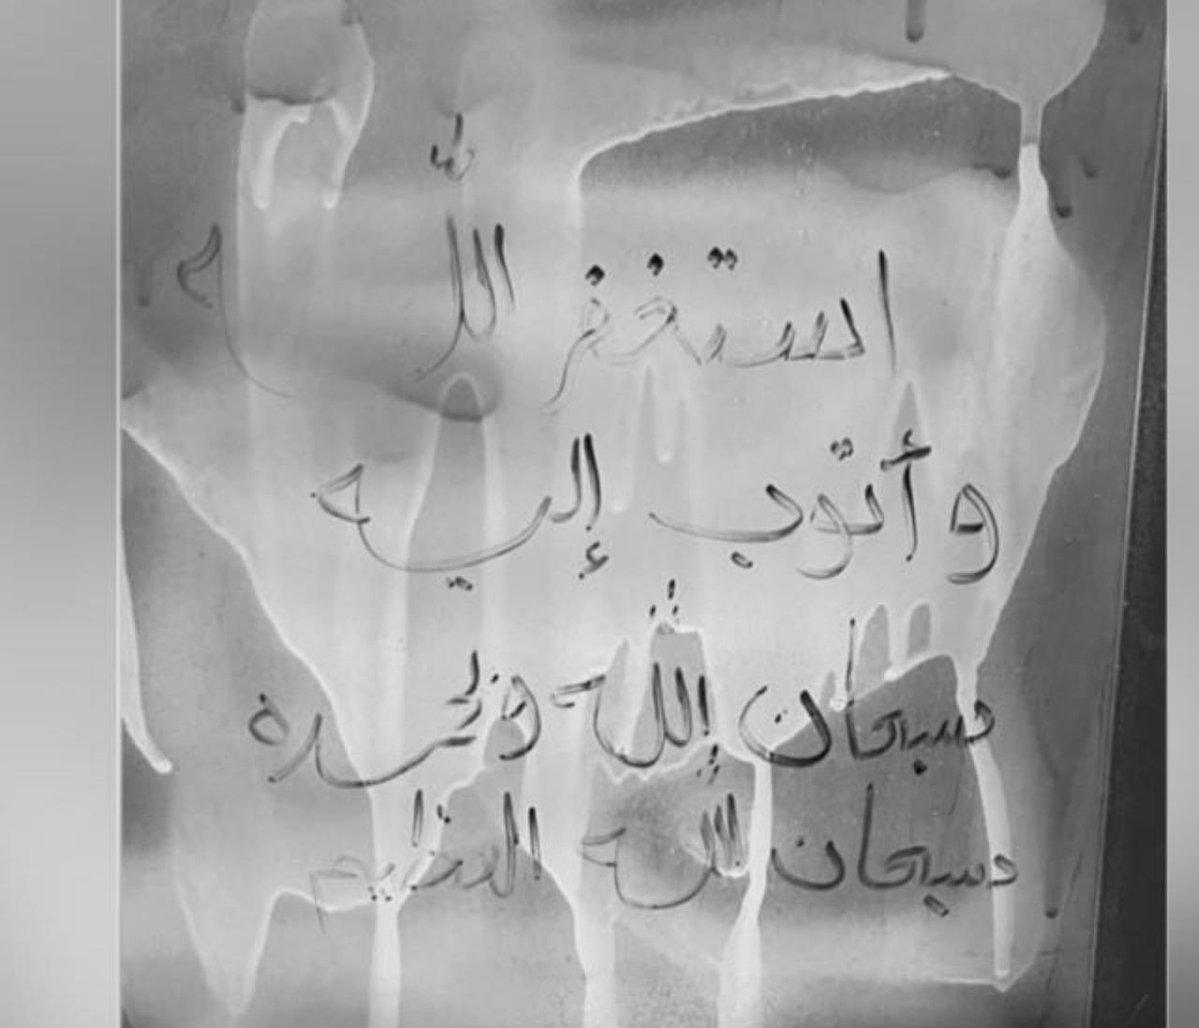 استغفر الله
وأتوب إليه
سبحان الله وبحمده
سبحان الله العظيم